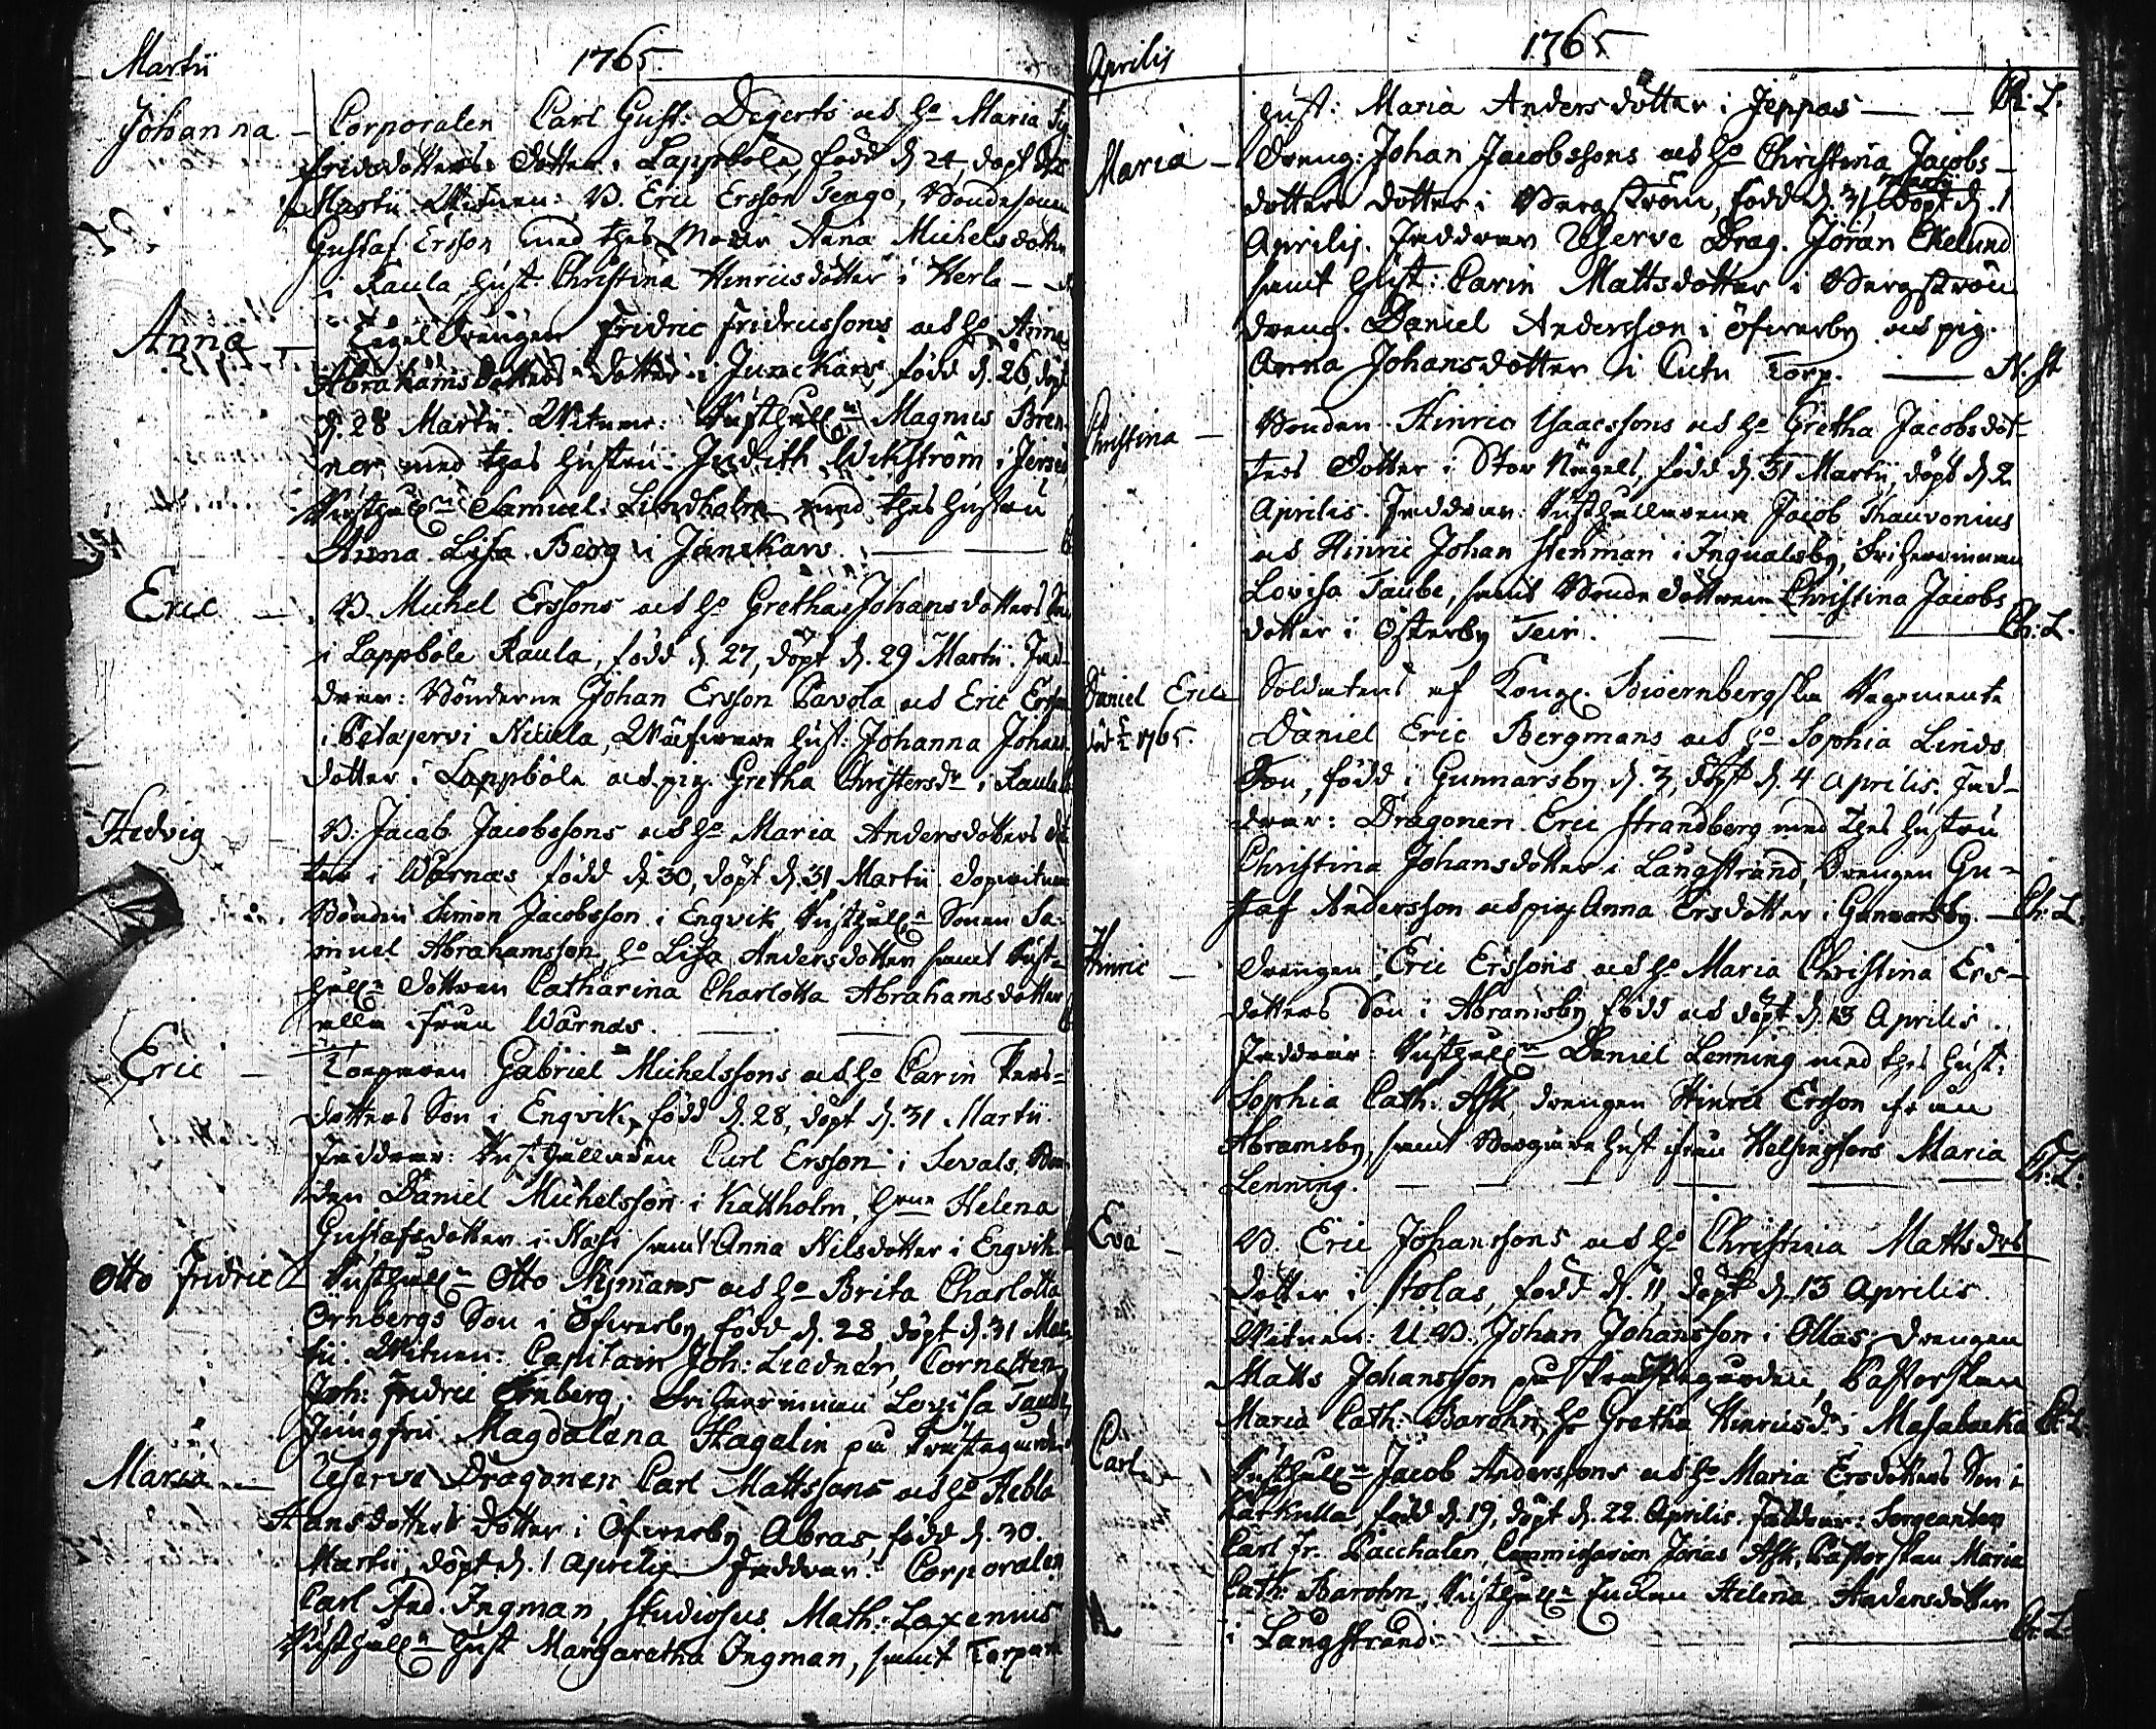 Martii 1765
Johanna – Corporalen Carl Gust: Degerts och Ho Maria Sig-
fridsdotters dotter i Lappböle, född d. 24, döpt d.
Martii. Witnen: B. Eric Ersson Tengo, Bondesonen
Gustaf Ersson med thes Moder Anna Michelsdotter
i Kaula, hust. Christina Hinricsdotter i Herla –
Anna – drängen Fridric Fridricssons och Ho Anna
Abrahamsdotters dotter i Junckars, född d. 26, döpt
d. 28 Martii. Witnen: Rusthåll:n Magnus Bren-
ner med thes hustru Judith Wikström i Jerfs
Rusthåll:n Samuel Lindholm med thes hustru
Anna Lisa Berg i Junckars. —
Eric – B. Michel Erssons och Ho Gretha Johansdotters Son
i Lappböle Kaula, född d. 27, döpt d. 29 Martii. Fad-
drar: Bönderne Johan Ersson Pavola och Eric Ersson
i Petajervi Nickila, Wäfware hust. Johanna Johans-
dotter i Lappböle och pig. Gretha Christersdr i Kaula
Hedvig B: Jacob Jacobssons och Ho Maria Andersdotters dot-
ter i Wårnäs född d. 30, döpt d. 31 Martii. dopwitnen
Bonden Simon Jacobsson i Engvik, Rusthåll:n Sonen Sa-
muel Abrahamsson, Ho Lisa Andersdotter samt Rust-
håll:n dottren Catharina Charlotta Abrahamsdotter
alla ifrån Wårnäs. —
Eric – Torparen Gabriel Michelssons och Ho Carin Pers-
dotters Son i Engvik, född d. 28, döpt d. 31 Martii.
Faddrar: Rusthållaren Carl Ersson i Sevals, Bon-
den Daniel Michelsson i Kattholm, Helena
Gustafsdotter i Nasi samt Anna Nilsdotter i Engvik
Otto Fridric Rusthåll:n Otto Nymans och Ho Brita Charlotta
Örnbergs Son i Öfwerby, född d. 28, döpt d. 31 Mar-
tii. Witnen: Capitain Joh: Liedner, Cornetten
Joh: Fridric Örnberg, Friherrinnan Lovisa Taube
Jungfru Magdalena Hagelin på Prästegården
Maria – Reserve Dragonen Carl Mattssons och Ho Hebla
Hansdotters dotter i Öfwerby Abras, född d. 30.
Martii, döpt d. 1 Aprilis. Faddrar: Corporalen
Carl Fred. Ingman, Studiosus Math: Laxenius
Rusthåll:n hust Margaretha Ingman, samt Torpare
Aprilis 1765
hust: Maria Andersdotter i Jeppas — Ch: L.
Maria – dräng: Johan Jacobssons och Ho Christina Jacobs-
dotters dotter i Bergström, född d. 31 Martii, döpt d. 1
Aprilis. Faddrar Reserve Drag. Jöran Ekelund
samt hust: Carin Mattsdotter i Bergström
dräng. Daniel Andersson i Öfwerby och pig.
Anna Johansdotter i Torp. — N. St
Christina – Bonden Hinric Isaacssons och Ho Gretha Jacobsdot-
ters dotter i Stor Nägels, född d. 31 Martii, döpt d. 2
Aprilis. Faddrar: Rusthållarene Jacob Thauvonius
och Hinric Johan Stenman i Ingvalsby, Friherrinnan
Lovisa Taube, samt Bonde dottren Christina Jacobs
dotter i Österby Teir. — Ch: L.
Daniel Eric Soldatens af Kongl. Biörnbergska Regemente
död 1765. Daniel Eric Bergmans och Ho Sophia Linds
Son, född i Gunnarsby d. 3, döpt d. 4 Aprilis. Fad-
drar: Dragonen Eric Strandberg med thes hustru
Christina Johansdotter i Långstrand, drengen Gu-
staf Andersson och pig. Anna Ersdotter i Gunnarsby. – Ch: L.
Hinric – drengen Eric Erssons och Ho Maria Christina Ers-
dotters Son i Abramsby född och döpt d. 13 Aprilis.
Faddrar: Rusthåll:n Daniel Lenning med thes hust:
Sophia Cath: Ask, drengen Hinric Ersson från
Abramsby, samt Borgare hust ifrån Helsingfors Maria
Lenning. — Ch: L.
Eva – B. Eric Johanssons och Ho Christina Mattsdrs
dotter i Stolas, född d. 11, döpt d. 13 Aprilis.
Witnen: U. B. Johan Johansson i Ollas, drengen
Matts Johansson på Prästegården, Pastorskan
Maria Cath: Barohn, Ho Gretha Hinricsdr i Masabacka Ch: L.
Carl – Rusthåll:n Jacob Anderssons och Ho Maria Ersdotters Son i
Karkulla, född d. 19, döpt d. 22 Aprilis. Faddrar: Sergeanten
Carl Fr. Pacchalen, Commissarien Jonas Ask, Pastorskan Maria
Cath: Barohn, Rusthåll:n Enckan Helena Andersdotter
i Långstrand. — Ch: L.